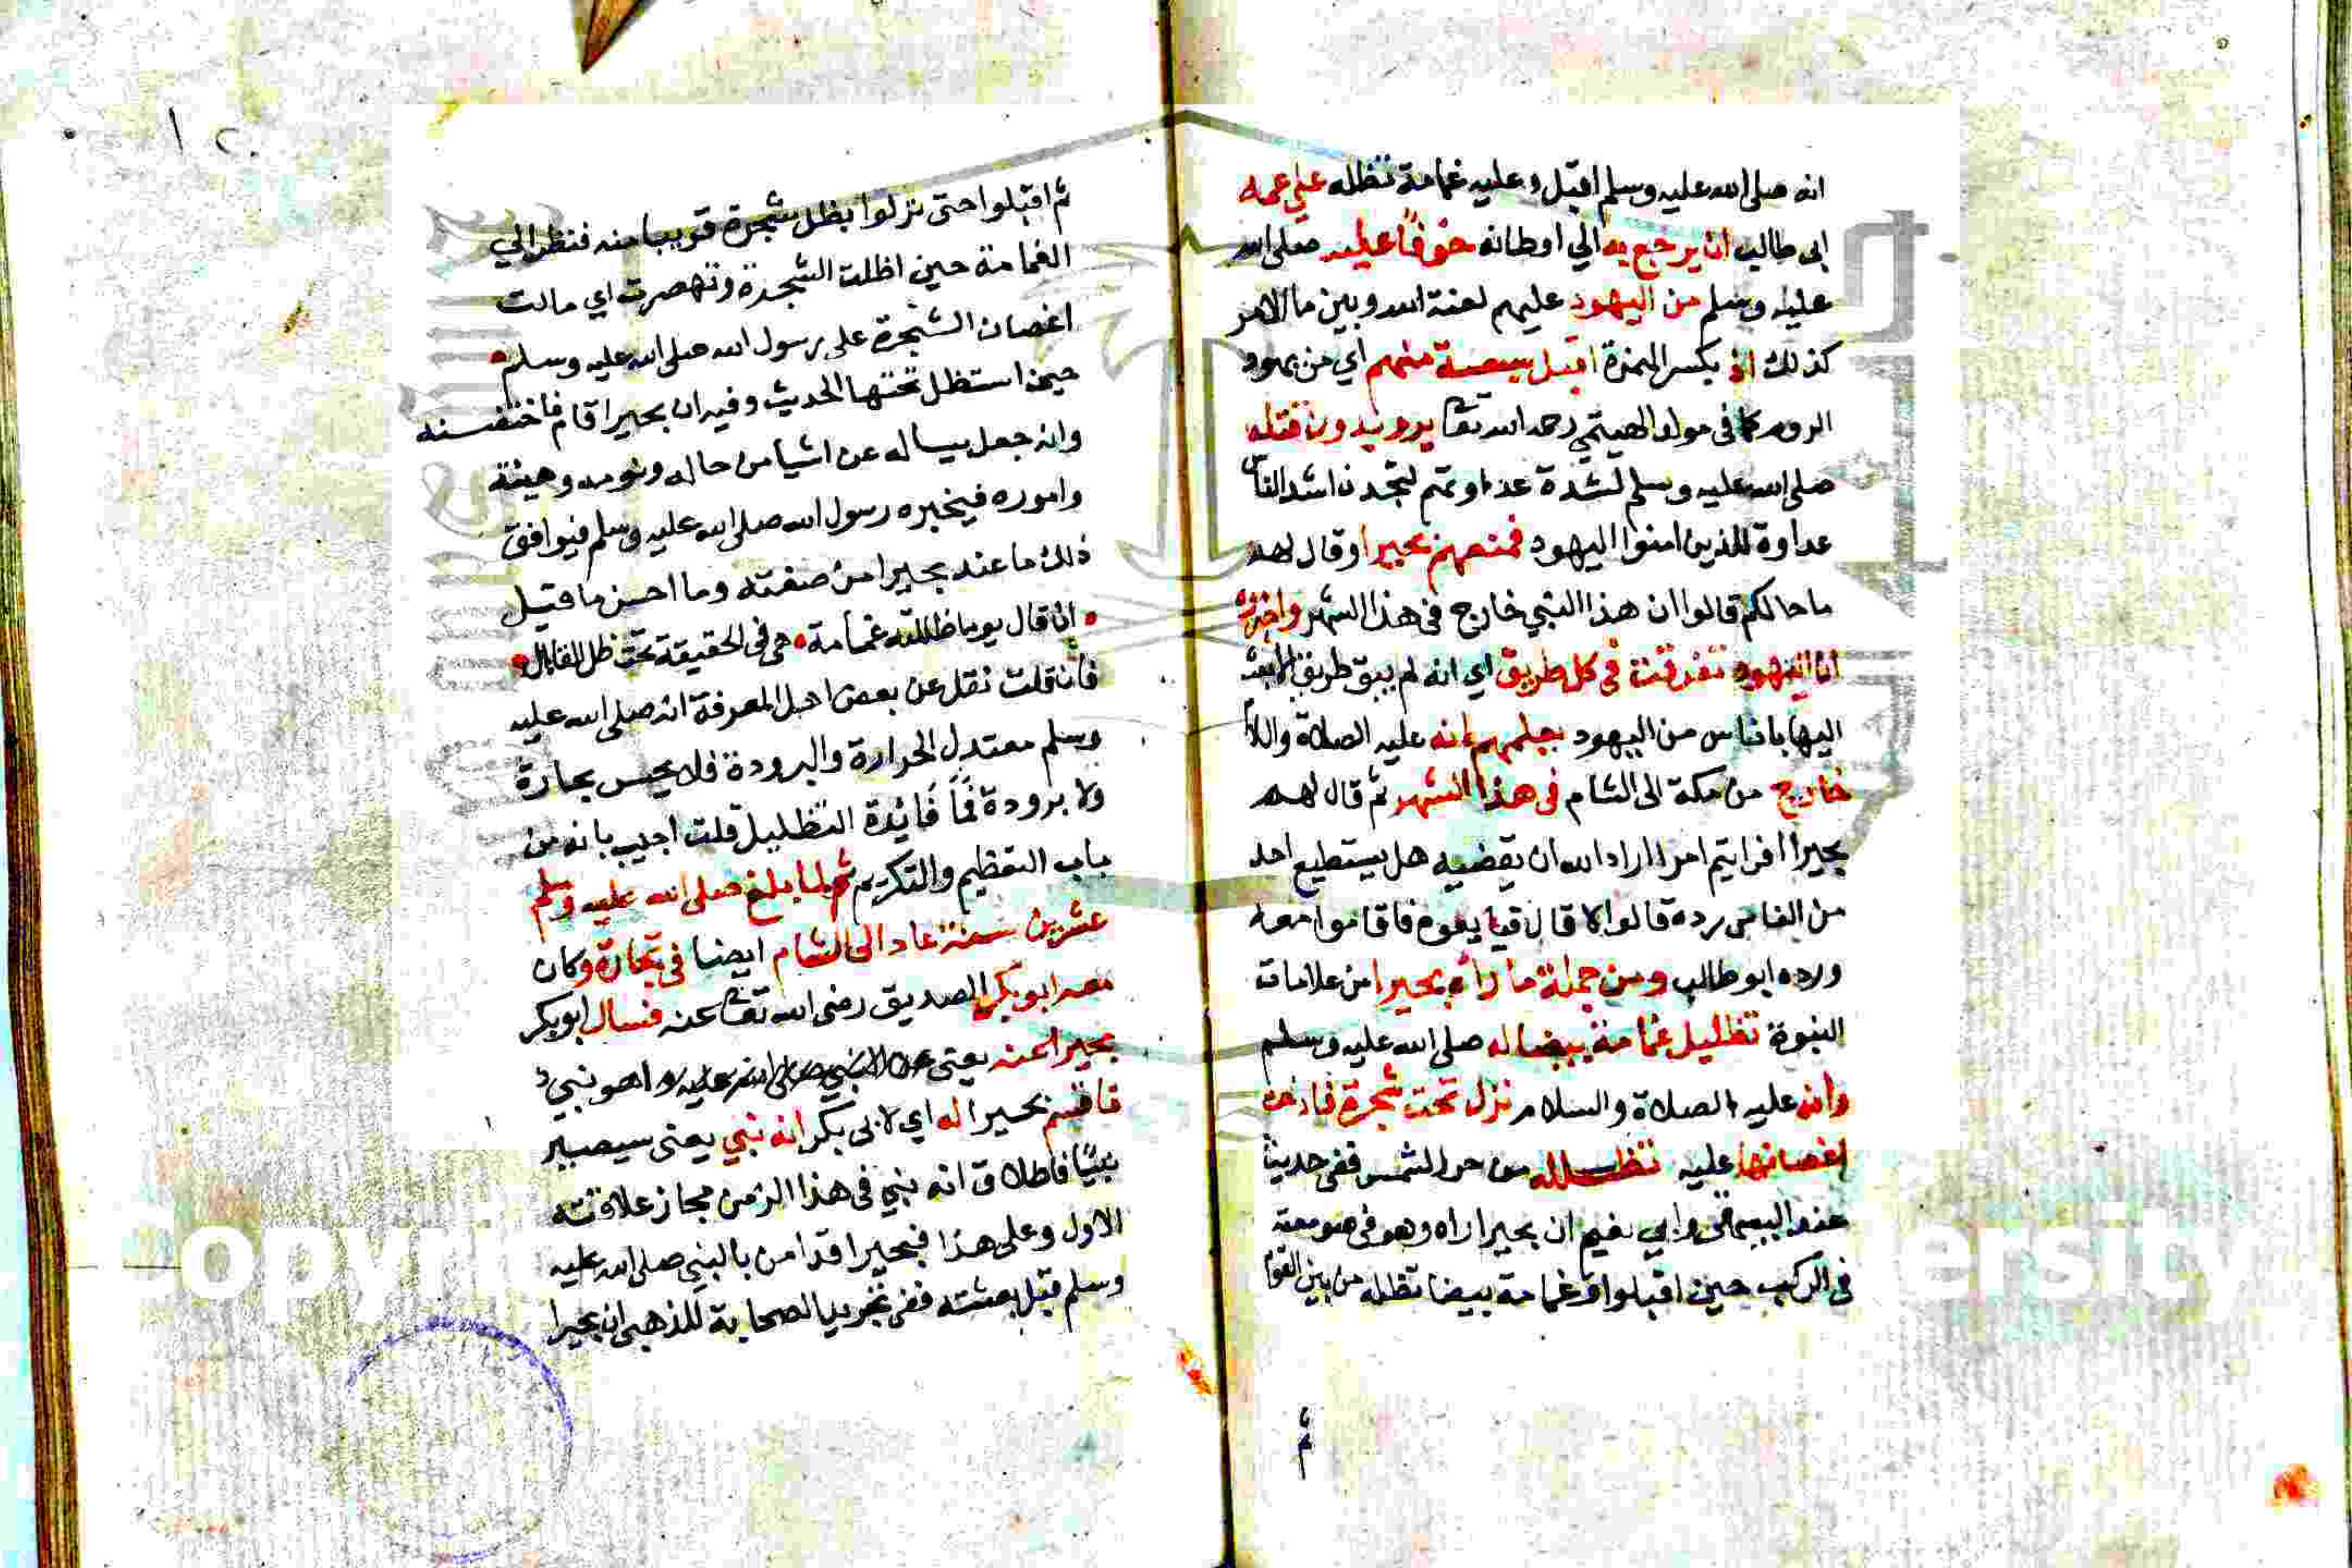 انه صلى الله عليه وسلم اقبل وعليه غمامة تظله علي عمه
ابى طالب ان يرجع به الي اوطانه خوفا عليه صلى الله
عليه وسلم من اليهود عليهم لعنة الله وبين ما الامر
كذلك اذ بكسر الهمزة اقبل سبعة منهم اي من يهود
الروم كما فى مولد الهيتمي رحمه الله تعا يريدون قتله
صلى الله عليه وسلم لشدة عداوتهم لتجدن اشد الناس
عداوة للذين امنوا اليهود فمنعهم بحيرا وقال لهم
ما حالكم قالوا ان هذا النبي خارج فى هذا الشهر
اليهود تفرقت في كل طريق اي انه لم يبق طريق الا بعث
اليها باناس من اليهود بعلمهم انه عليه الصلاة والسلا
خارج من مكة الى الشام فى هذا الشهر ثم قال لهم
بحيرا افرايتم امرا اراد الله ان يقضيه هل يستطيع احد
من الناس رده قالوا لا قال فاقاموا معه
ورده ابو طالب ومن جملة ما رأه بحيرا من علامات
النبوة تظليل غمامة بيضا له صلى الله عليه وسلم
وانه عليه الصلاة والسلام نزل تحت شجرة
اغصانها عليه تظلله من حر الشمس ففى حديث
عند البيهقى وابي نعيم ان بحيرا راه وهو فى صومعته
فى الركب حين اقبلوا وغمامة بيضا تظله من بين القوم
ثم
١٢
ثم اقبلوا حتى نزلوا بظل شجرة قريبا منه فنظر الي
الغمامة حين اظلت الشجرة وتهصرت اي مالت
اغصان الشجرة على رسول الله صلى الله عليه وسلم
حين استظل تحتها الحديث وفيه ان بحيرا قام فاحتضنه
وانه جعل يساله عن اشيا من حاله ونومه وهيئة
واموره فيخبره رسول الله صلى الله عليه وسلم فيوافق
ذلك ما عند بحيرا من صفته وما احسن ما قيل
ان قال يوما ظللته غمامة هي فى الحقيقة تحت ظل القائل
فان قلت نقل عن بعض اهل المعرفة انه صلى الله عليه
وسلم معتدل الحرارة والبرودة فلا يحس بحارة
ولا برودة فما فائدة التظليل قلت اجيب بانه من
باب التعظيم والتكريم ثم لما بلغ صلى الله عليه وسلم
عشرين سنة عاد الى الشام ايضا فى تجارة وكان
معه ابو بكر الصديق رضى الله تعا عنه فسال ابو بكر
بحيرا عنه يعنى عن النبي صلى الله عليه اهو نبي
فاقسم بحيرا له اي لابى بكر انه نبي يعنى سيصير
نبيا فاطلاق انه نبي فى هذا الزمن مجاز علاقته
الاول وعلى هذا فبحيرا قد امن بالنبي صلى الله عليه
وسلم قبل بعثته ففى تجريد الصحابة للذهبى ان بحيرا